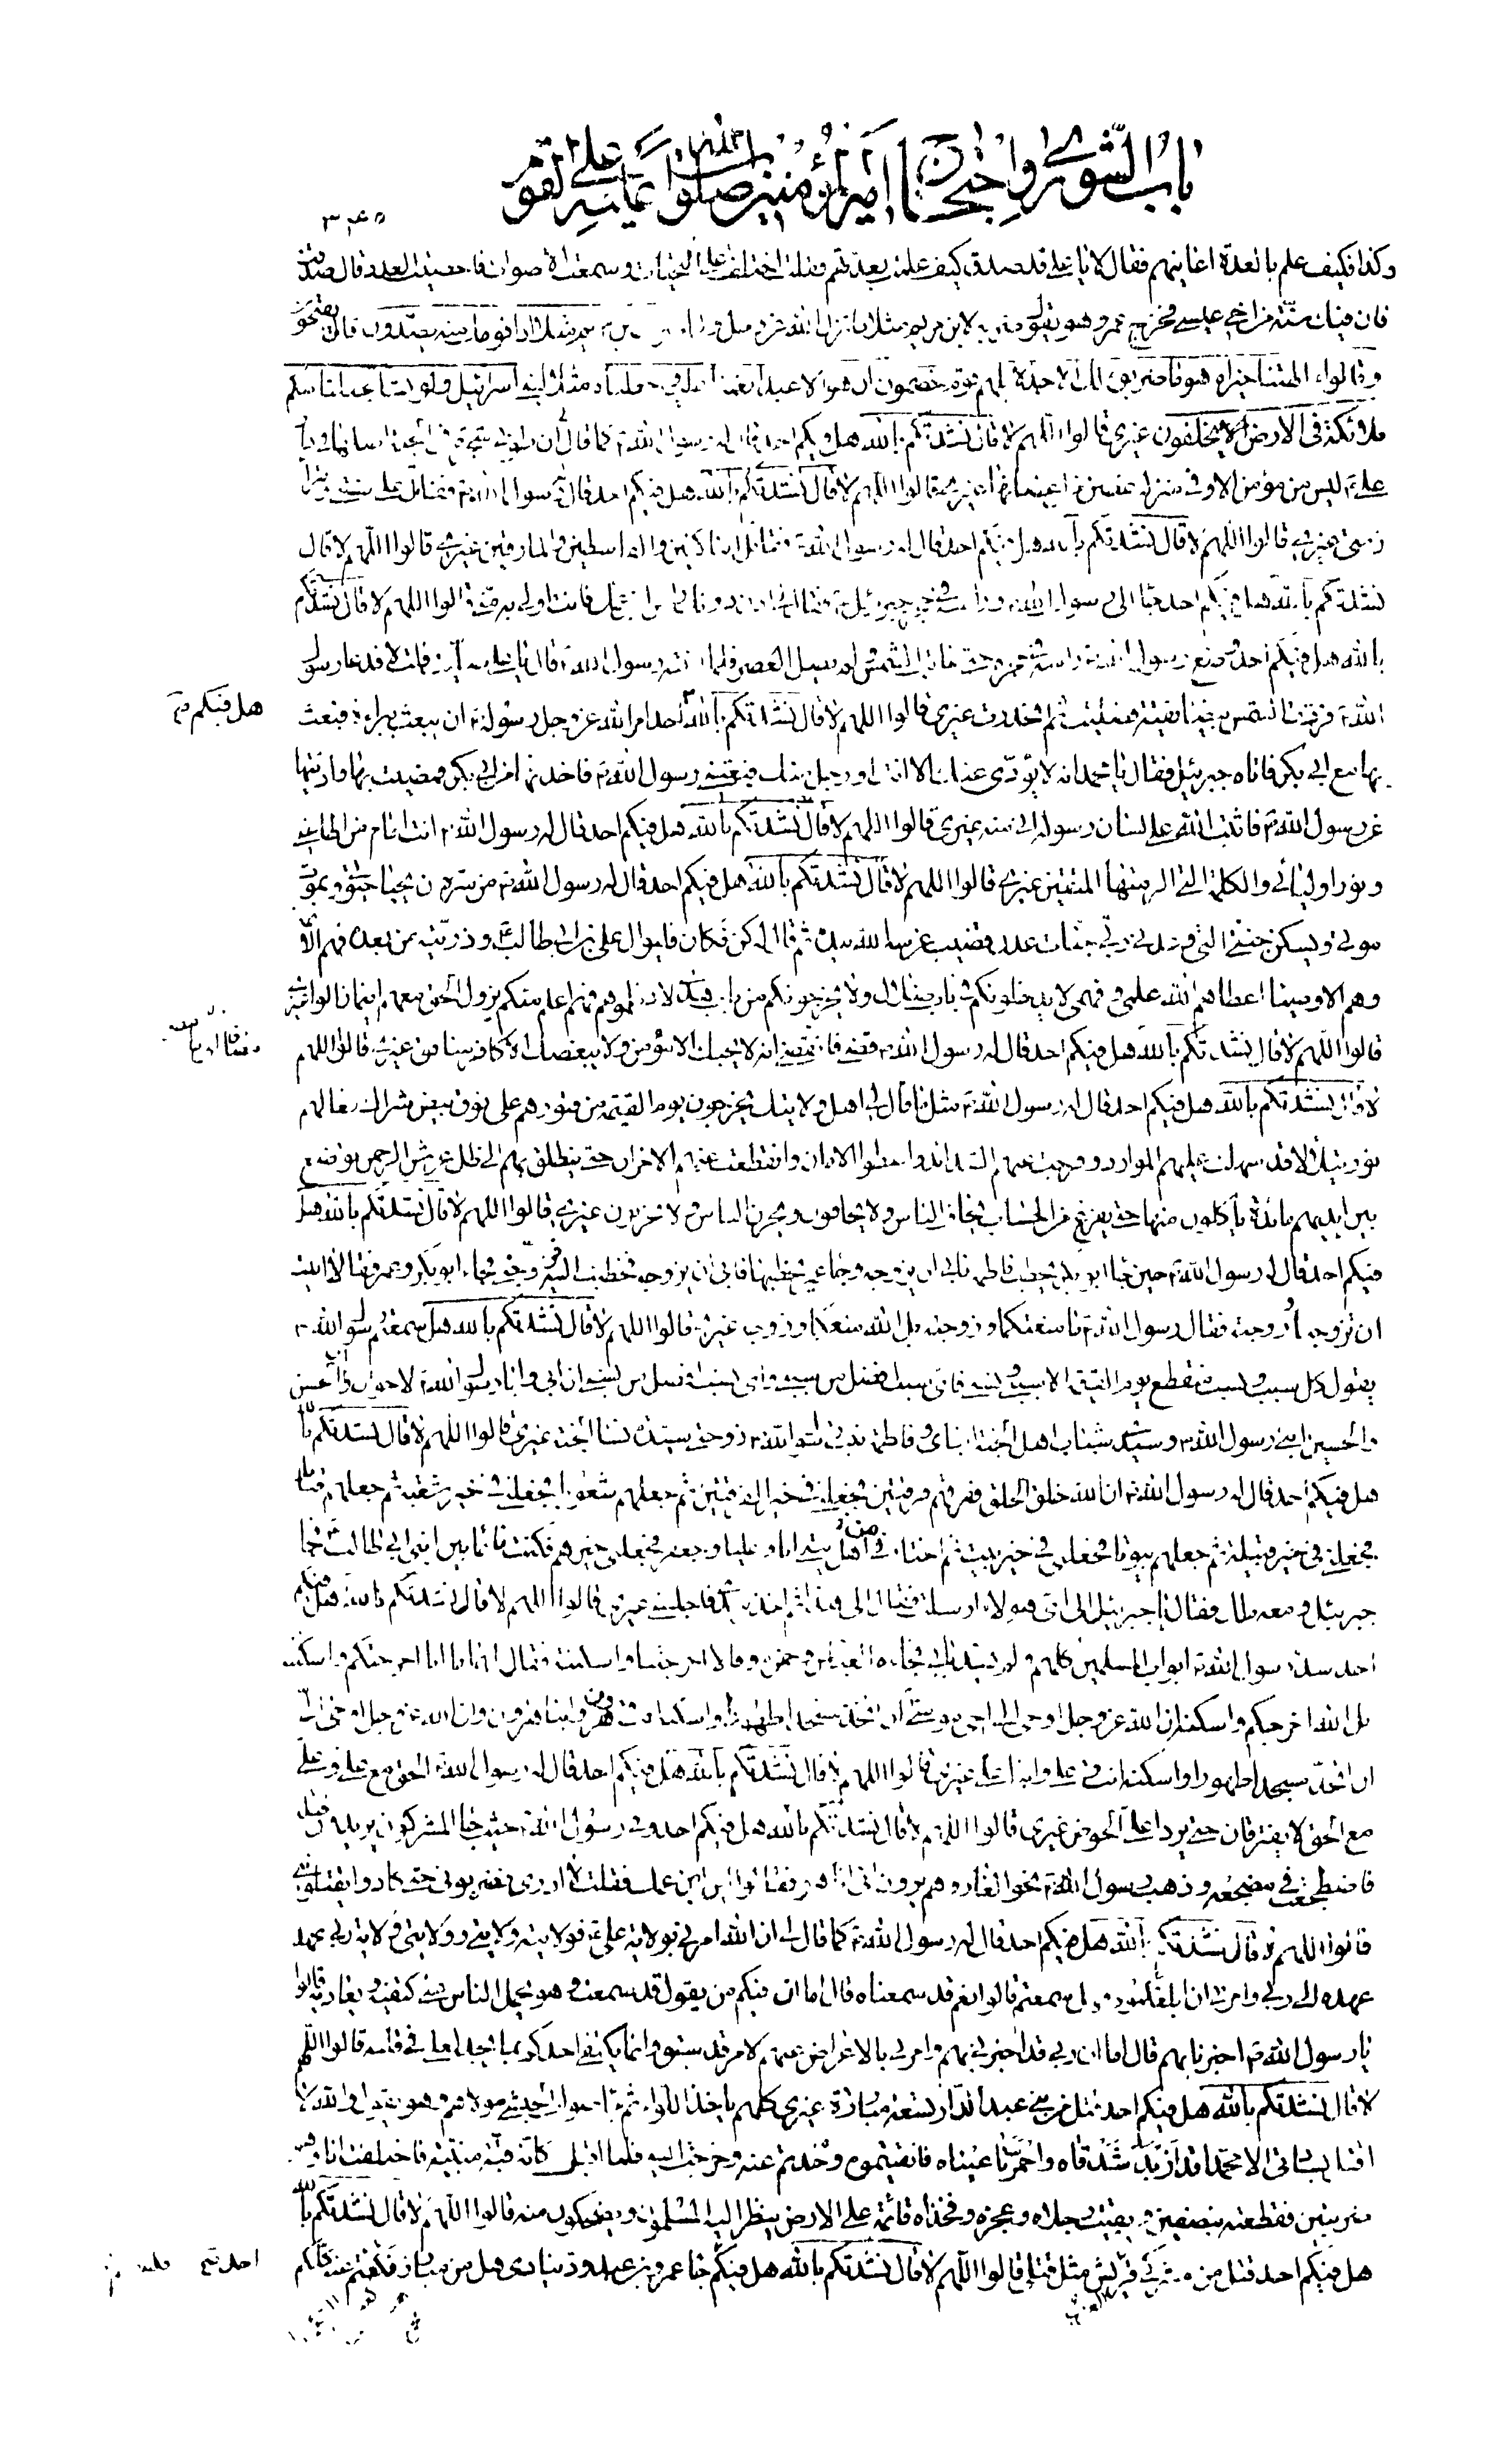 باب الشورى واحتجاج امير المؤمنين صلوات الله عليه على القوم
٣٤٥
وكذا فكيف علم بالعدة اعاينهم فقال لا يا علي قد صدق كيف علمت بعدتهم فقلت اختلفت علي التحيات وسمعت الاصوات فاحصيت العدد قال صدقت
فان فيك سنة من اخي عيسى فخرج عمر وهو يقول ضربه لابن مريم مثلا فانزل الله عز وجل ولما ضرب ابن مريم مثلا اذا قومك منه يصدون قال يضجون
وقالوا ءالهتنا خير ام هو ما ضربوه لك الا جدلا بل هم قوم خصمون ان هو الا عبد انعمنا عليه وجعلناه مثلا لبني اسرائيل ولو نشاء لجعلنا منكم
ملائكة في الارض يخلفون غيري قالوا اللهم لا قال نشدتكم بالله هل فيكم احد قال له رسول الله كما قال لي ان طوبى شجرة في الجنة اصلها في دار
علي ليس من مؤمن الا وفي منزله غصن من اغصانها غيري قالوا اللهم لا قال نشدتكم بالله هل فيكم احد قال له رسول الله تقاتل على سنتي وتبرء
ذمتي غيري قالوا اللهم لا قال نشدتكم بالله هل فيكم احد قال له رسول الله تقاتل الناكثين والقاسطين والمارقين غيري قالوا اللهم لا قال
نشدتكم بالله هل فيكم احد جاء الى رسول الله ورأسه في حجر جبرئيل فقال لي ادن دونك رأس ابن عمك فانت اولى به مني قالوا اللهم لا قال نشدتكم
بالله هل فيكم احد وضع رسول الله رأسه في حجره حتى غابت الشمس لم يصل العصر فلما انتبه رسول الله قال يا علي صليت قلت لا فدعا رسول
الله فردت الشمس بيضاء نقية فصليت ثم انحدرت غيري قالوا اللهم لا قال نشدتكم بالله احد امر الله عز وجل رسوله ان يبعث ببراءة فبعث
هل فيكم
بها مع ابي بكر فاتاه جبرئيل فقال يا محمد انه لا يؤدي عنك الا انت او رجل منك فبعثني رسول الله فاخذتها من ابي بكر فمضيت بها واديتها
عن رسول الله فاثبت الله على لسان رسوله اني منه غيري قالوا اللهم لا قال نشدتكم بالله هل فيكم احد قال له رسول الله انت امام من اطاعني
ونور اوليائي والكلمة التي الزمتها المتقين غيري قالوا اللهم لا قال نشدتكم بالله هل فيكم احد قال له رسول الله من سره ان يحيا حيوتي ويموت
موتي ويسكن جنتي التي وعدني ربي جنات عدن قضيب غرسه الله بيده ثم قال له كن فكان فليوال علي بن ابي طالب وذريته من بعده فهم الائمة
وهم الاوصياء اعطاهم الله علمي وفهمي لا يدخلونكم في باب ضلال ولا يخرجونكم من باب هدى لا تعلموهم فهم اعلم منكم يزول الحق معهم اينما زالوا غيري
قالوا اللهم لا قال نشدتكم بالله هل فيكم احد قال له رسول الله قضى فانقضى انه لا يحبك الا مؤمن ولا يبغضك الا كافر منافق غيري قالوا اللهم
لا قال نشدتكم بالله هل فيكم احد قال له رسول الله مثل ما قال لي اهل ولايتك يخرجون يوم القيمة من قبورهم على نوق بيض شراك نعالهم
نور يتلألأ قد سهلت عليهم الموارد وفرجت عنهم الشدائد واعطوا الامان وانقطعت عنهم الاحزان حتى ينطلق بهم الى ظل عرش الرحمن توضع
بين ايديهم مائدة يأكلون منها حتى يفرغ من الحساب يخاف الناس ولا يخافون ويحزن الناس ولا يحزنون غيري قالوا اللهم لا قال نشدتكم بالله هل
فيكم احد قال له رسول الله حين جاء ابو بكر يخطب فاطمة فابى ان يزوجه وجاء عمر يخطبها فابى ان يزوجه فخطبت اليه فزوجني فجاء ابو بكر وعمر فقالا ابيت
ان تزوجنا وزوجته فقال رسول الله ما منعتكما وزوجته بل الله منعكما وزوجه غيري قالوا اللهم لا قال نشدتكم بالله هل سمعتم رسول الله
يقول كل سبب ونسب منقطع يوم القيمة الا سببي ونسبي فاي سبب افضل من سببي واي نسب افضل من نسبي ان ابي وابا رسول الله لاخوان وان الحسن
والحسين ابني رسول الله وسيدي شباب اهل الجنة ابناي وفاطمة بنت رسول الله زوجتي سيدة نساء الجنة غيري قالوا اللهم لا قال نشدتكم بالله
هل فيكم احد قال له رسول الله ان الله خلق الخلق ففرقهم فرقتين فجعلني في خير الفرقتين ثم جعلهم شعوبا فجعلني في خير شعبة ثم جعلهم قبائل
فجعلني في خير قبيلة ثم جعلهم بيوتا فجعلني في خير بيت ثم اختار من اهل بيتي انا وعليا وجعفر فجعلني خيرهم فكنت نائما بين ابني ابي طالب فجاء
جبرئيل ومعه ملك فقال يا جبرئيل الى اي هؤلاء ارسلت فقال الى هذا ثم اخذ بيدي فاجلسني غيري قالوا اللهم لا قال نشدتكم بالله هل فيكم
احد سد رسول الله ابواب المسلمين كلهم ولم يسد بابي فجاءه العباس وحمزة وقالا اخرجتنا واسكنته فقال لهما ما انا اخرجتكم واسكنته
بل الله اخرجكم واسكنه ان الله عز وجل اوحى الى اخي موسى ان اتخذ مسجدا طهورا واسكنه انت وهرون وابنا هرون وان الله عز وجل اوحى الي
ان اتخذ مسجدا طهورا واسكنه انت وعلي وابناء علي غيري قالوا اللهم لا قال نشدتكم بالله هل فيكم احد قال له رسول الله الحق مع علي وعلي
مع الحق لا يفترقان حتى يردا على الحوض غيري قالوا اللهم لا قال نشدتكم بالله هل فيكم احد وقى رسول الله حيث جاء المشركون يريدون قتله
فاضطجعت في مضجعه وذهب رسول الله نحو الغار وهم يرون اني انا هو فقالوا اين ابن عمك فقلت لا ادري فضربوني حتى كادوا يقتلوني
قالوا اللهم لا قال نشدتكم بالله هل فيكم احد قال له رسول الله كما قال لي ان الله امرني بولاية علي فولايته ولايتي وولايتي ولاية ربي عهد
عهده الي ربي وامرني ان ابلغكموه فهل سمعتم قالوا نعم قد سمعناه قال اما ان فيكم من يقول قد سمعت وهو يحمل الناس على كتفيه ويعاديه قالوا
يا رسول الله اخبرنا بهم قال اما ان ربي قد اخبرني بهم وامرني بالاعراض عنهم لامر قد سبق وانما يكتفي احدكم بما يجد لعلي في قلبه قالوا اللهم
لا قال نشدتكم بالله هل فيكم احد قتل من بني عبد الدار تسعة مبارزة غيري كلهم ياخذ اللواء ثم جاء صواب الحبشي مولاهم وهو يقول والله لا
اقتل بسادتي الا محمدا قد ازبد شدقاه واحمرتا عيناه فاتقيتموه وحدتم عنه وخرجت اليه فلما اقبل كانه قبة مبنية فاختلفت انا وهو
ضربتين فقطعته بنصفين وبقيت رجلاه وعجزه وفخذاه قائمة على الارض ينظر اليه المسلمون ويضحكون منه قالوا اللهم لا قال نشدتكم بالله
هل فيكم احد قتل من مشركي قريش مثل قتلي قالوا اللهم لا قال نشدتكم بالله هل فيكم جاء عمرو بن عبد ود ينادي هل من مبارز فكعتم عنه كلكم